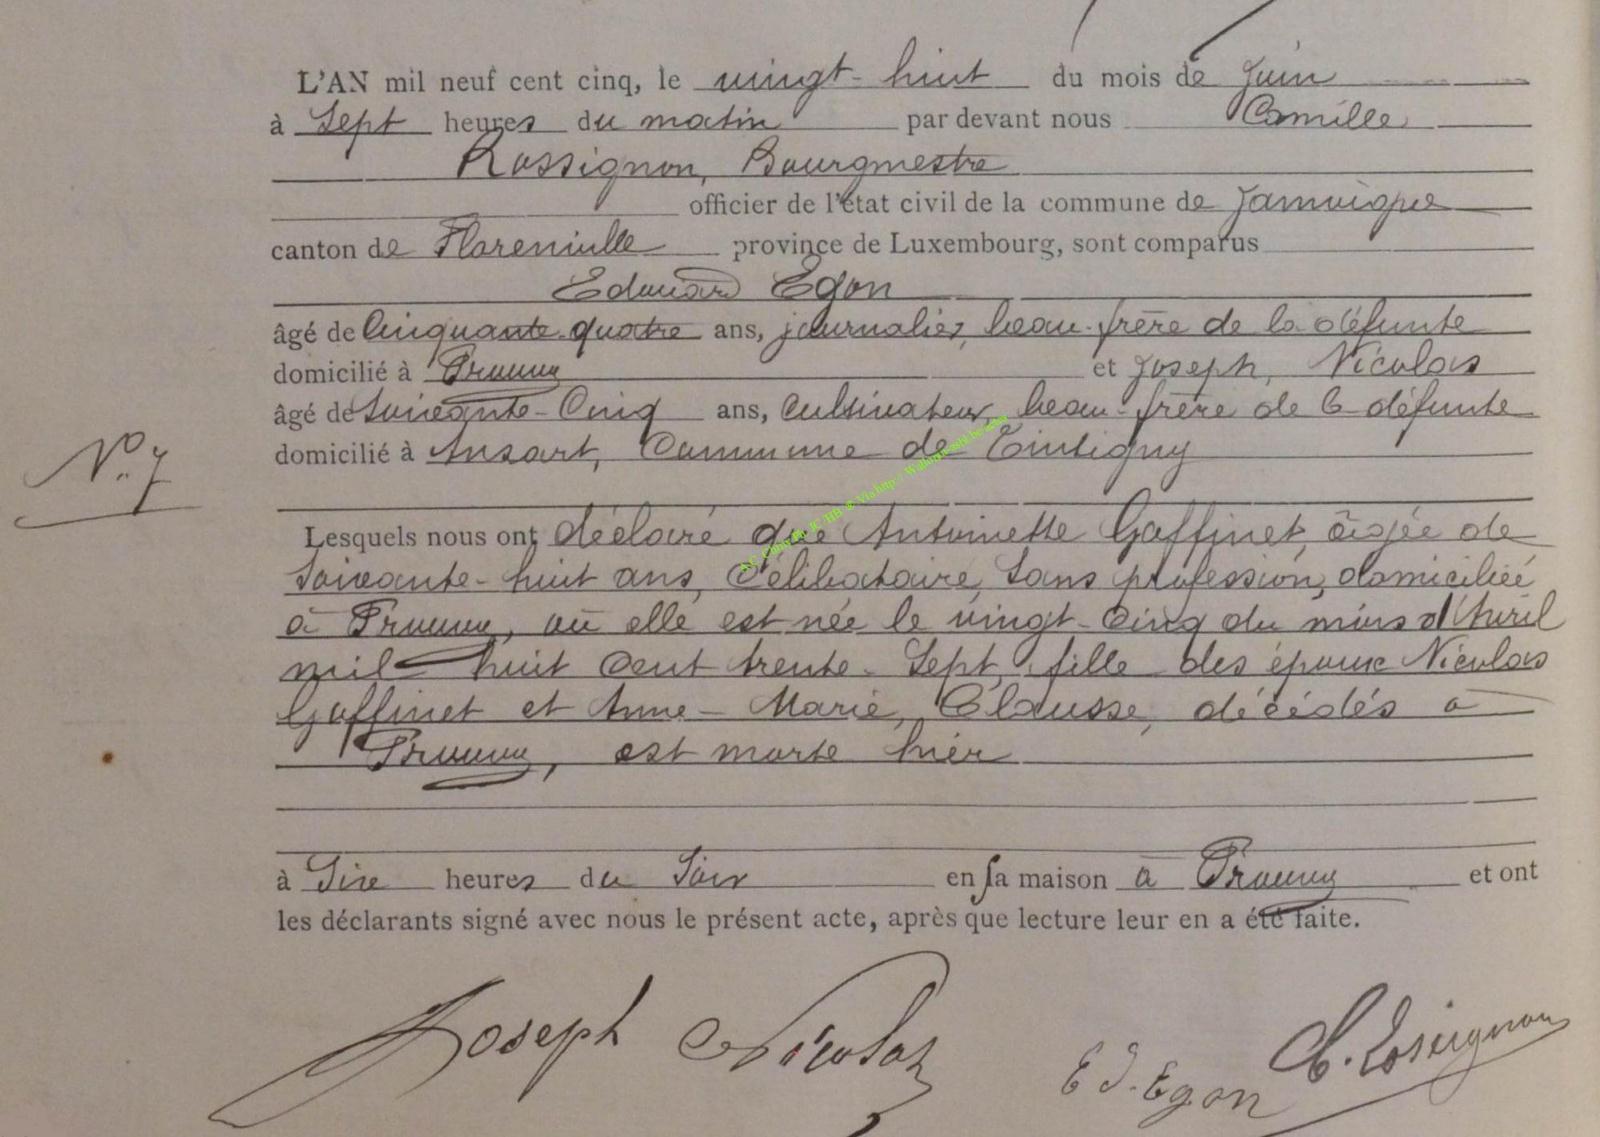 L'AN mil neuf cent cinq, le vingt-huit du mois de Juin
à Sept heures du matin par devant nous Camille
Rossignon, Bourgmestre
officier de l'état civil de la commune de Jamoigne
canton de Florenville province de Luxembourg, sont comparus
Edouard Egon
âgé de Cinquante-quatre ans, journalier, beau-frère de la défunte
domicilié à Prouvy et Joseph, Nicolas
âgé de Soixante-Cinq ans, Cultivateur, beau-frère de la défunte
domicilié à Ansart, Commune de Tintigny
N° 7
Lesquels nous ont déclaré que Antoinette Gaffinet, âgée de
Soixante-huit ans, Célibataire, Sans profession, domiciliée
à Prouvy, où elle est née le vingt-Cinq du mois d'Avril
mil huit Cent trente-Sept, fille des époux Nicolas
Gaffinet et Anne-Marie, Clausse, décédés à
Prouvy, est morte hier
à Six heures du Soir en sa maison à Prouvy et ont
les déclarants signé avec nous le présent acte, après que lecture leur en a été faite.
Joseph Nicolas Ed. Egon C. Rossignon